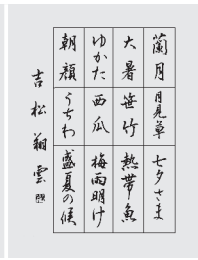 蘭月 月見草 七夕さま
大暑 笹竹 熱帯魚
ゆかた 西瓜 梅雨明け
朝顔 うちわ 盛夏の候
吉松翔雲